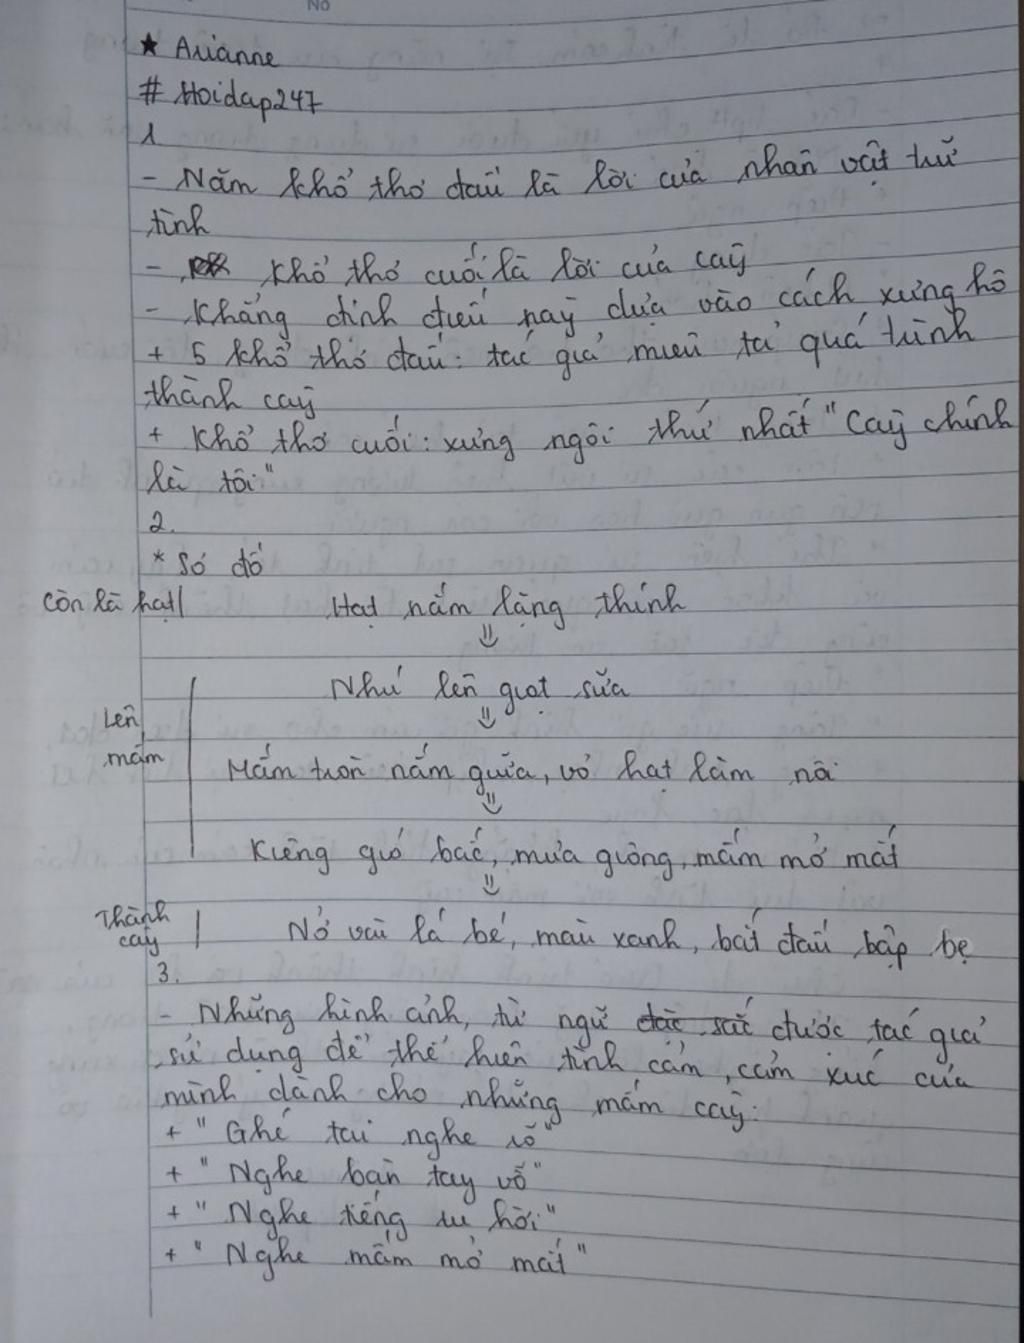 No
★ Arianne
# Hoidap247
1.
- Năm khổ thơ đầu là lời của nhân vật trữ
tình
- Khổ thơ cuối là lời của cây
- Khẳng định điều này dựa vào cách xưng hô
+ 5 khổ thơ đầu: tác giả miêu tả quá trình
thành cây
+ Khổ thơ cuối: xưng ngôi thứ nhất "Cây chính
là tôi"
2.
* Sơ đồ
Còn là hạt | Hạt nằm lặng thinh
⇓
Nhú lên giọt sữa
⇓
Lên
mầm
Mầm tròn nằm giữa, vỏ hạt làm nôi
⇓
Kiêng gió bắc, mưa giông, mầm mở mắt
⇓
Thành
cây | Nở vài lá bé, màu xanh, bắt đầu bập bẹ
3.
- Những hình ảnh, từ ngữ được tác giả
sử dụng để thể hiện tình cảm, cảm xúc của
mình dành cho những mầm cây:
+ "Ghé tai nghe rõ"
+ "Nghe bàn tay vỗ"
+ "Nghe tiếng ru hời"
+ "Nghe mầm mở mắt"